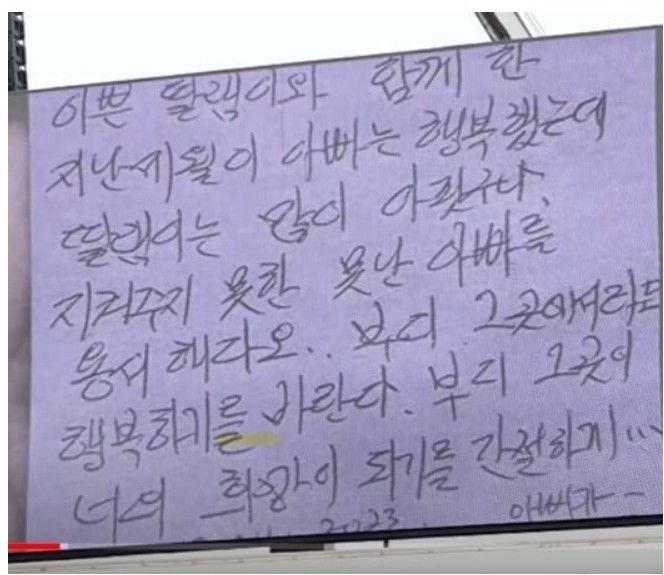 이쁜 딸램이와 함께 한
지난세월이 아빠는 행복했는데
딸램이는 많이 아팠구나,
지켜주지 못한 못난 아빠를
용서해다오.. 부디 그곳에서라도
행복하기를 바란다. 부디 그곳이
너의 희망이 되기를 간절하게...
2023. 아빠가-